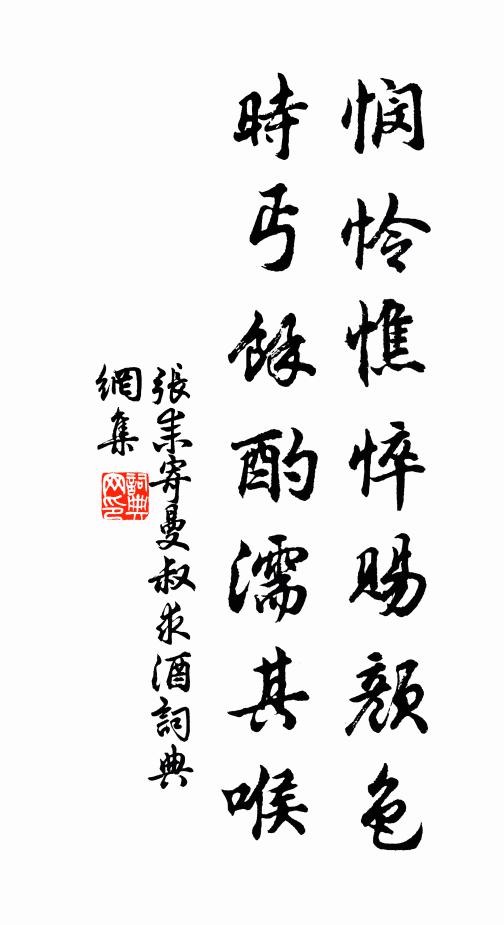 憫怜憔悴賜顏色
時丐餘酌濡其喉
張耒寄曼叔求酒詞典
網集
詞典
网印